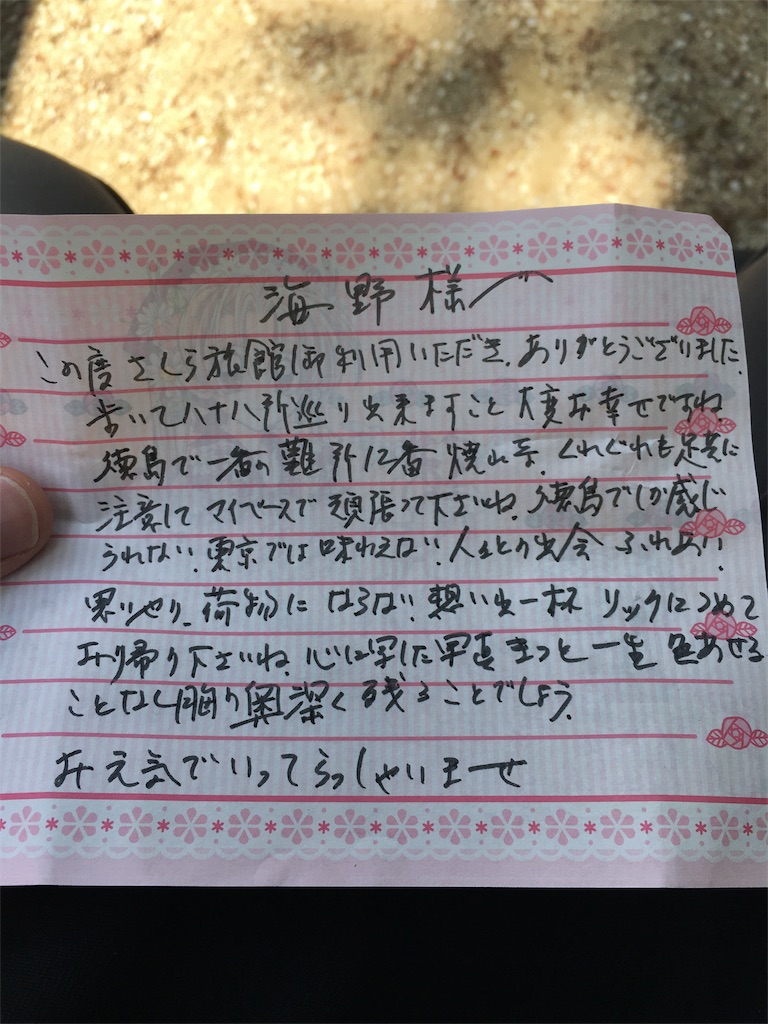 海野様へ
この度さくら旅館御利用いただき、ありがとうございました。
歩いて八十八ヶ所巡り出来ますこと大変お幸せですね。
徳島で一番の難所12番焼山寺、くれぐれも足元に
注意してマイペースで頑張って下さいね。徳島でしか感じ
られない、東京では味わえない、人との出会ふれあい、
思いやり、荷物にならない想い出一杯リックにつめて
お帰り下さいね。心に写した写真きっと一生色あせる
ことなく胸の奥深く残ることでしょう。
お元気でいってらっしゃいませ